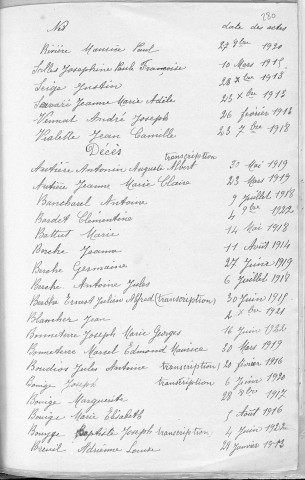 Nés date des actes
Rivière Maurice Paul 22 8bre 1920
Salles Josephine Paule Françoise 10 Mars 1915
Serge Justin 28 Xbre 1913
Savarie Jeanne Marie Adèle 23 Xbre 1912
Vernal André Joseph 26 février 1918
Violette Jean Camille 23 7bre 1918
Décès
Autière Antonin Auguste Albert transcription 21 Mai 1919
Autière Jeanne Marie Claire 23 Mars 1919
Bancharel Antoine 9 juillet 1918
Bordet Clémentine 4 9bre 1922
Battut Marie 14 Mai 1918
Berche Jeanne 11 Août 1914
Berche Germaine 27 Juin 1919
Berche Antoine Jules 6 Juillet 1918
Ernest Julien Alfred (transcription) 30 Juin 1915
Blancher Jean 2 Xbre 1921
Bonneterre Joseph Marie Georges 16 Juin 1922
Bonneterre Marcel Edmond Maurice 30 Mars 1919
Boudrois Jules Antoine transcription) 20 février 1916
Bouige Joseph transcription 6 Juin 1920
Bouige Marguerite 28 9bre 1917
Bouige Marie Elisabeth 5 Août 1916
Bouyge Baptiste Joseph transcription) 4 Juin 1922
Breuil Adrienne Louise 21 Janvier 1913